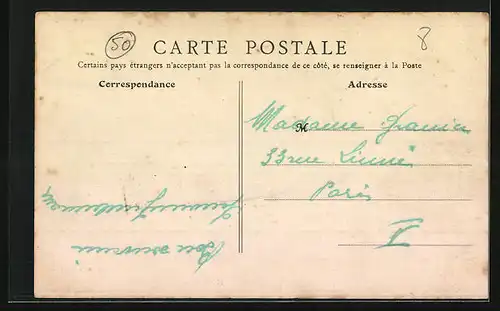 50
8
CARTE POSTALE
Certains pays étrangers n'acceptant pas la correspondance de ce côté, se renseigner à la Poste
Correspondance
Adresse
M
Madame
33 rue Linné
Paris
V
Bon souvenir